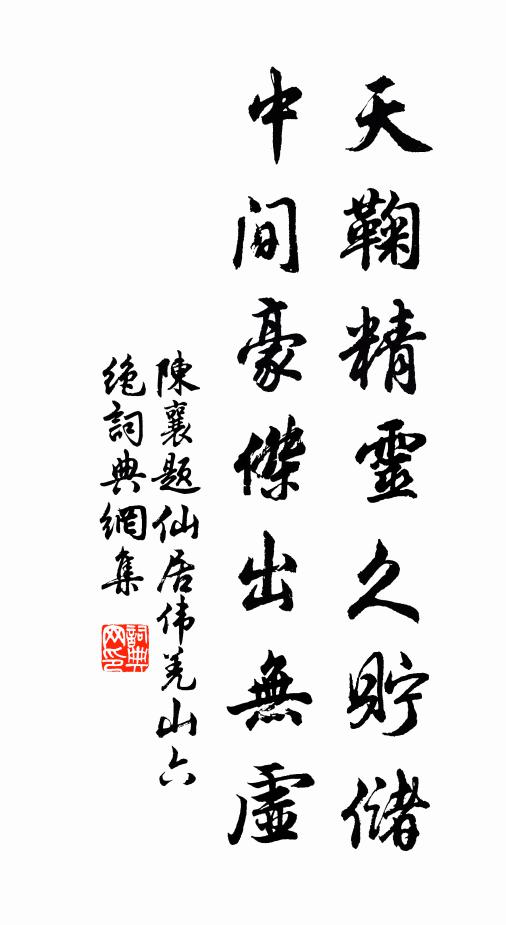 天鞠精靈久貯儲
中间豪傑出無虛
陳襄题仙居伟羌山六
绝詞典網集
詞典
网印